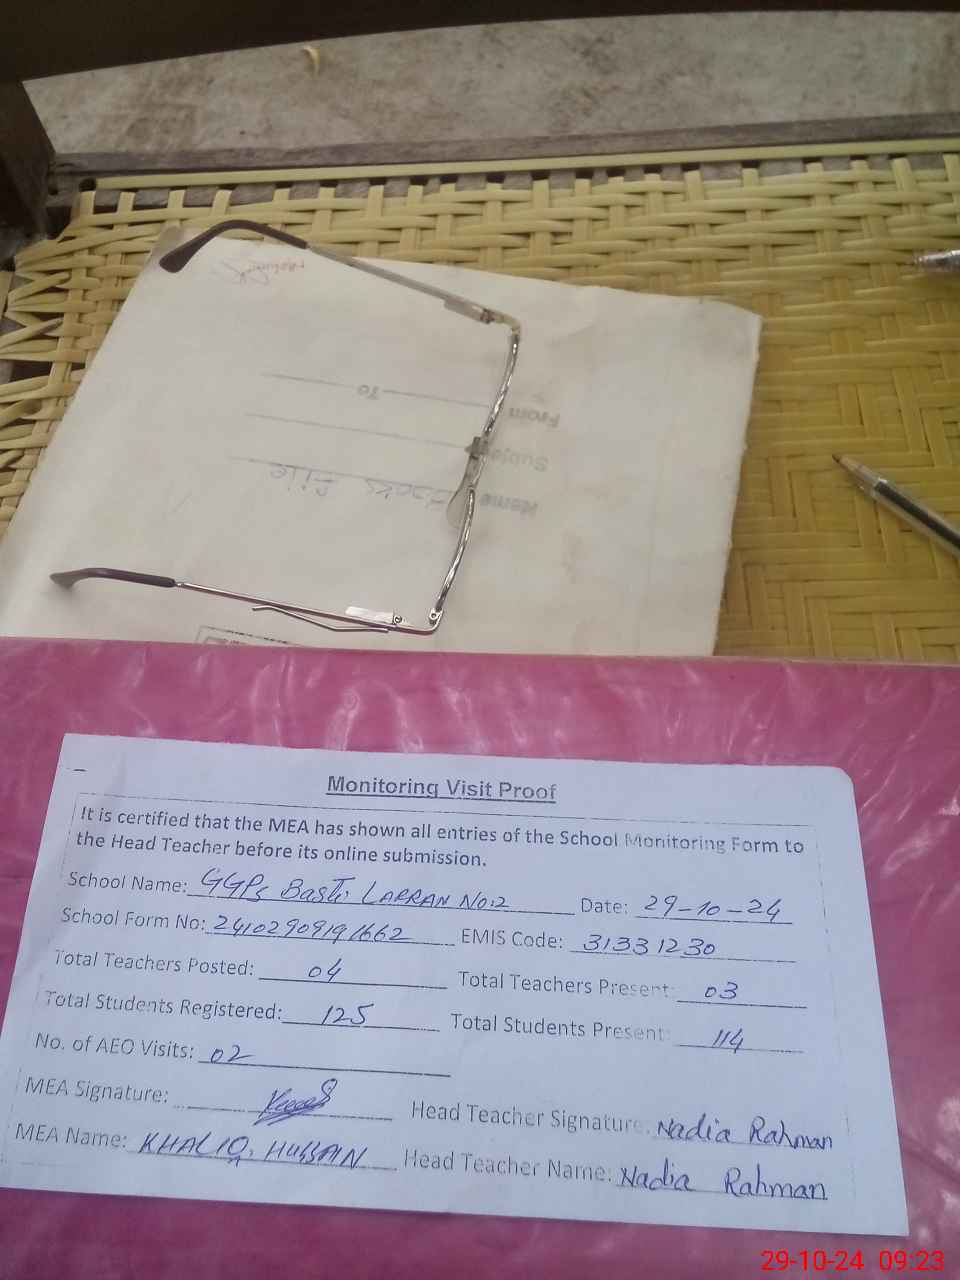 To
From
Subject
Name Books File
Monitoring Visit Proof
It is certified that the MEA has shown all entries of the School Monitoring Form to
the Head Teacher before its online submission.
School Name: GGPS Basti LARRAN No:2 Date: 29-10-24
School Form No: 24102909191662 EMIS Code: 31331230
Total Teachers Posted: 04 Total Teachers Present: 03
Total Students Registered: 125 Total Students Present: 114
No. of AEO Visits: 02
MEA Signature: Head Teacher Signature: Nadia Rahman
MEA Name: KHALIQ HUSSAIN Head Teacher Name: Nadia Rahman
29-10-24 09:23